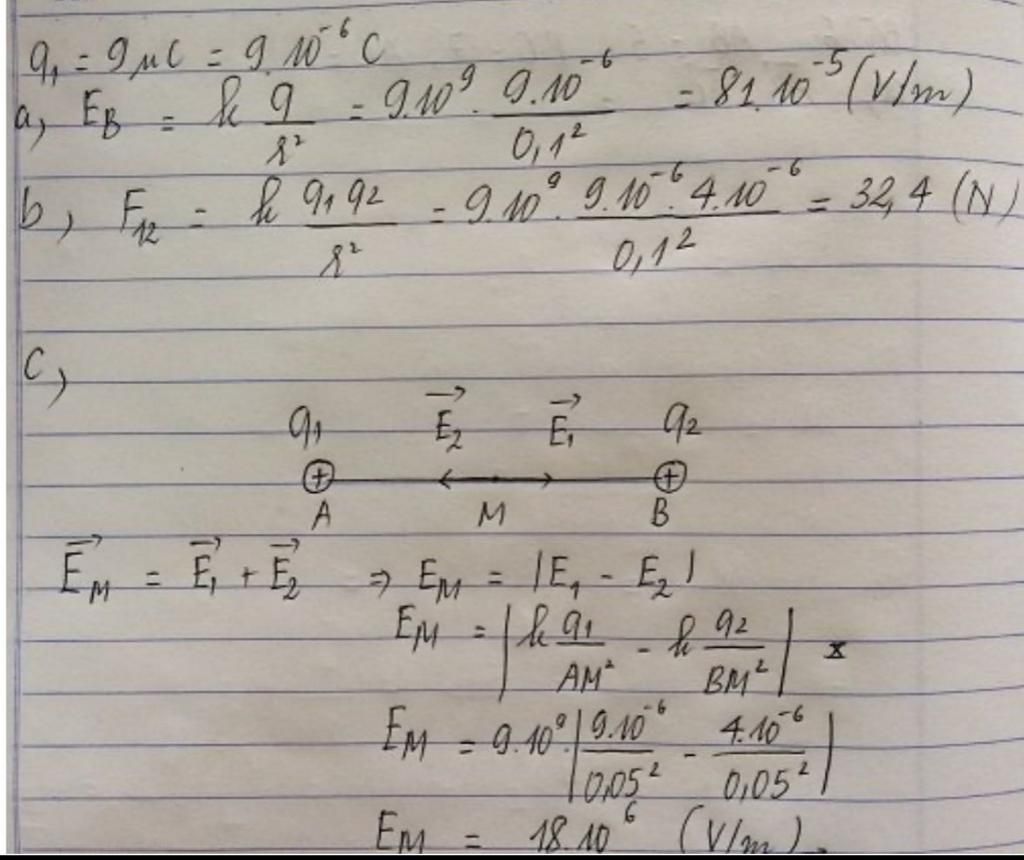 q₁ = 9 μC = 9.10⁻⁶ C
a, E_B = k q/r² = 9.10⁹ . 9.10⁻⁶/0,1² = 81.10⁻⁵ (V/m)
b, F₁₂ = k q₁q₂/r² = 9.10⁹ . 9.10⁻⁶.4.10⁻⁶/0,1² = 32,4 (N)
c,
q₁ E₂→ E₁→ q₂
+ +
A M B
E_M→ = E₁→ + E₂→ ⇒ E_M = |E₁ - E₂|
E_M = |k q₁/AM² - k q₂/BM²|
E_M = 9.10⁹.|9.10⁻⁶/0,05² - 4.10⁻⁶/0,05²|
E_M = 18.10⁶ (V/m)